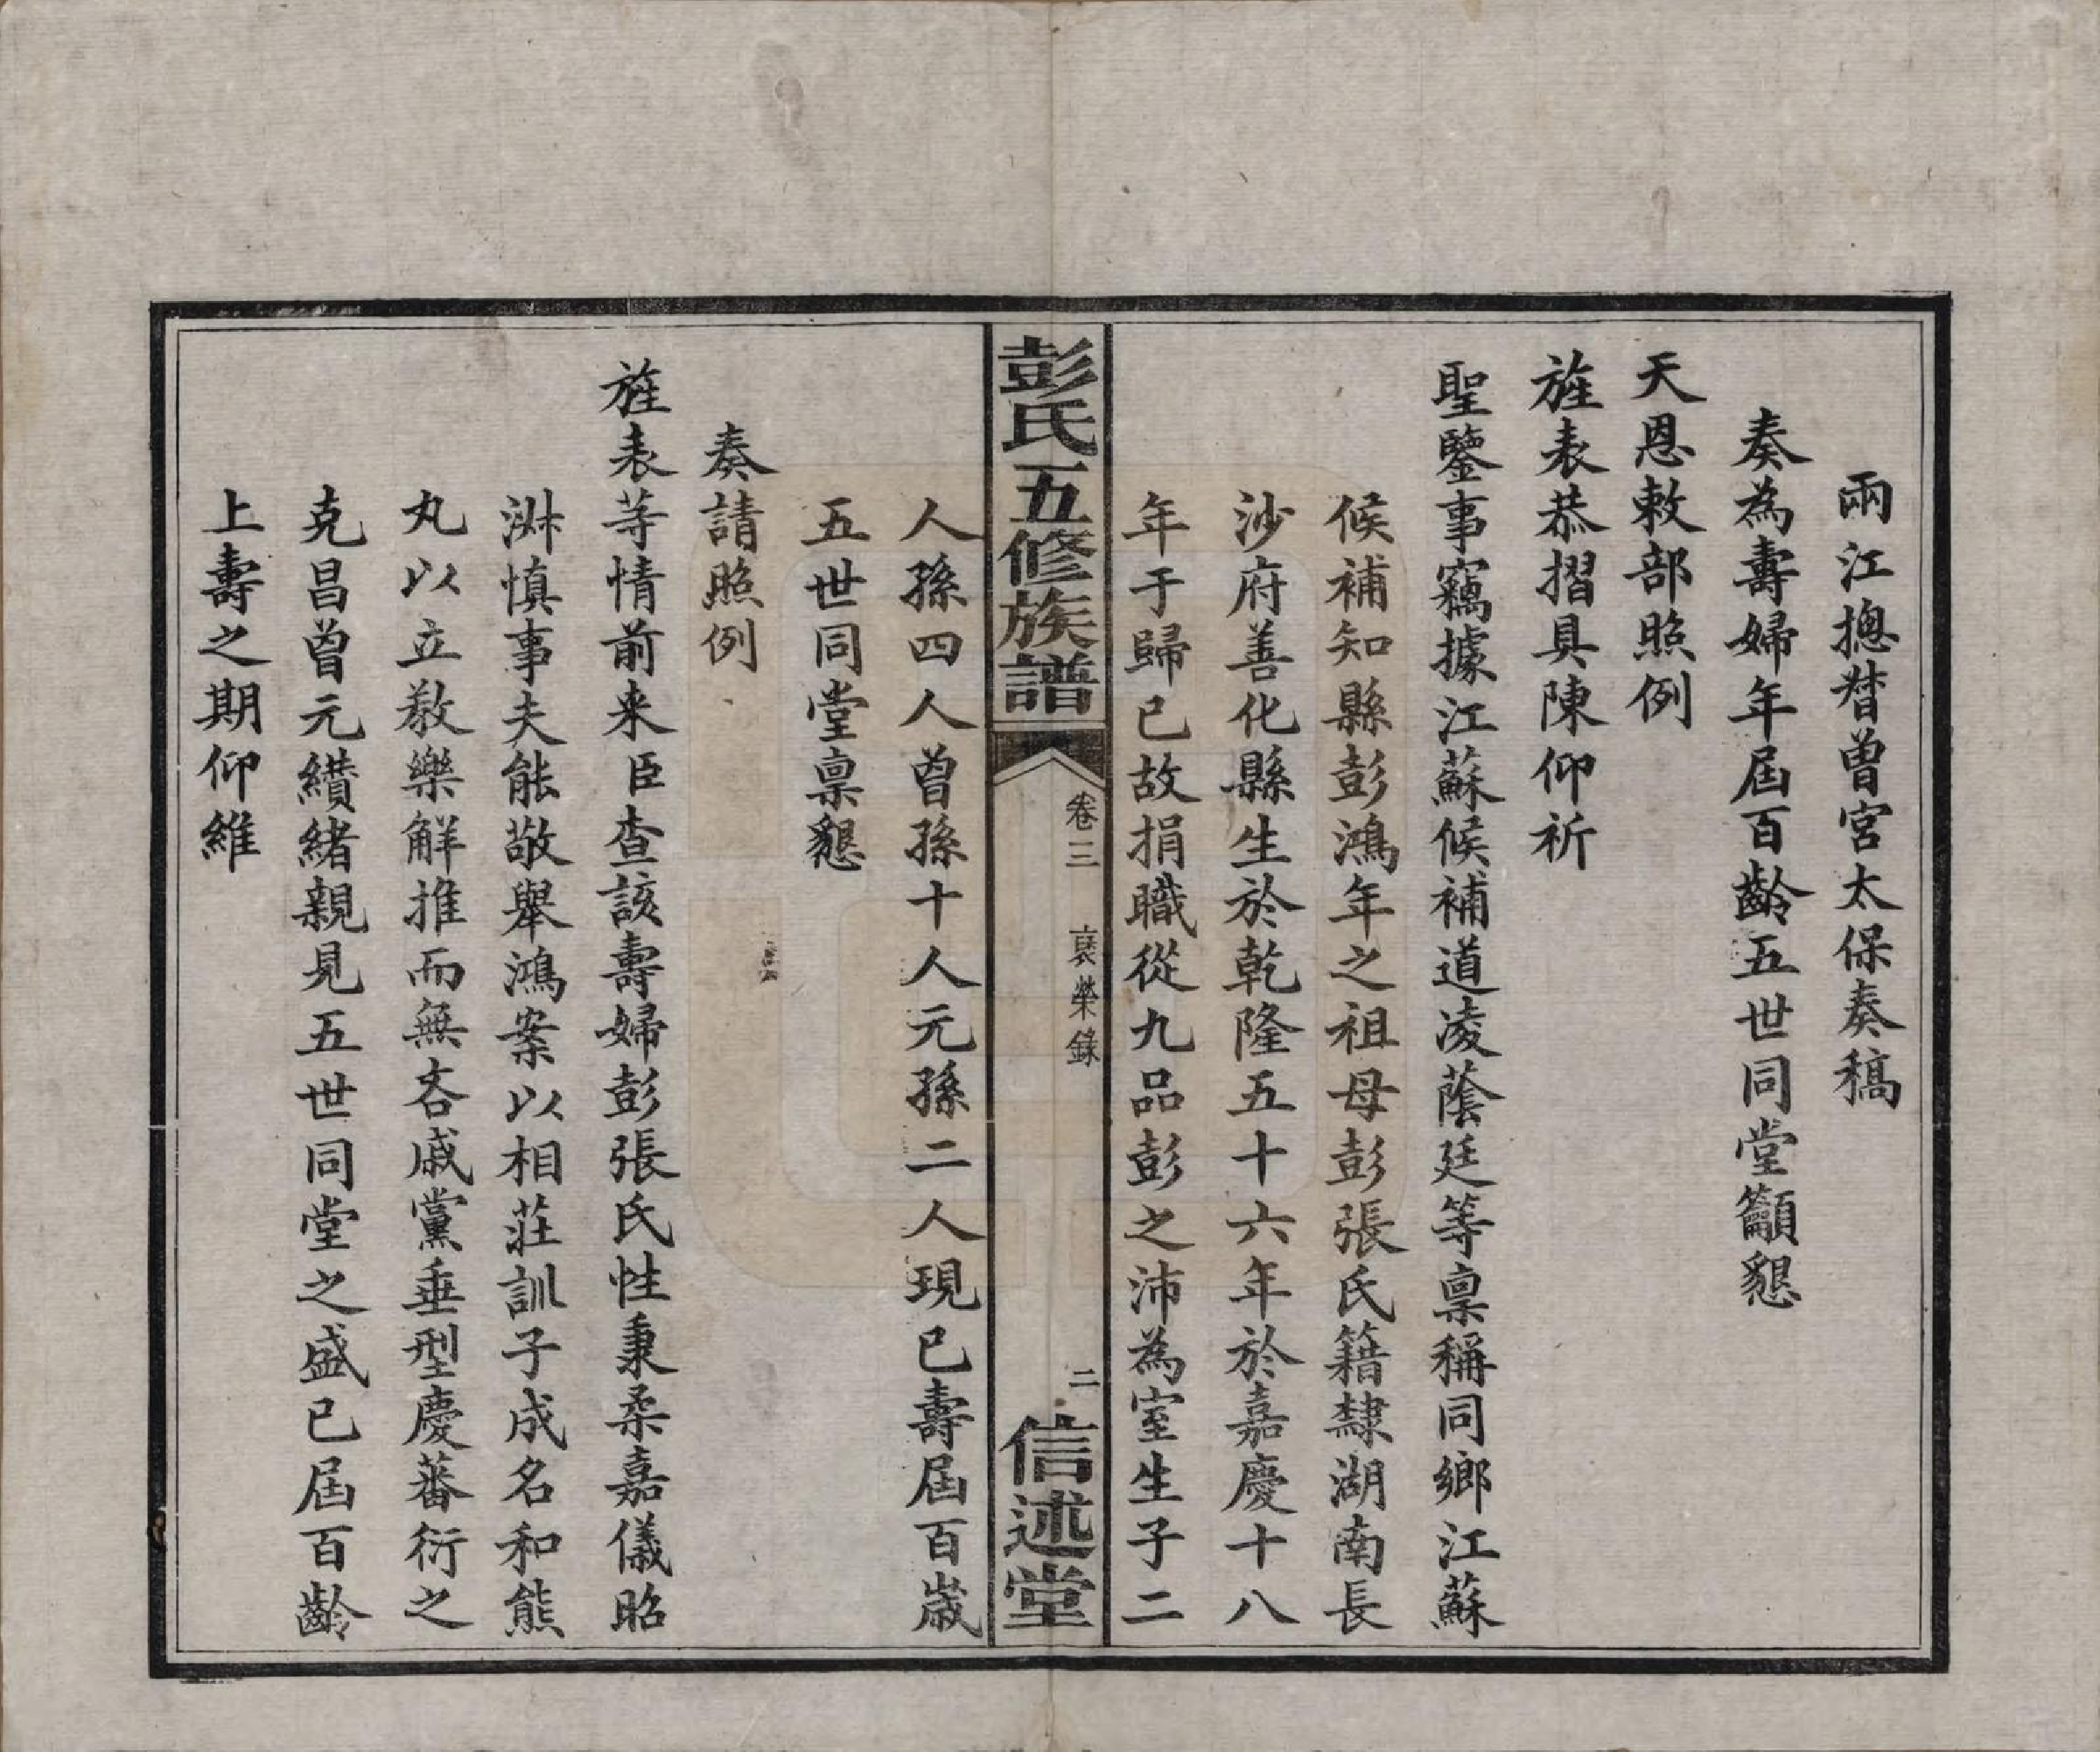 兩江摠督曾宮太保奏稿
奏為壽婦年屆百齡五世同堂籲懇
天恩敕部照例
旌表恭摺具陳仰祈
聖鑒事竊據江蘇候補道凌蔭廷等稟稱同鄉江蘇
候補知縣彭鴻年之祖母彭張氏籍隸湖南長
沙府善化縣生於乾隆五十六年於嘉慶十八
年于歸已故捐職從九品彭之沛為室生子二
彭氏五修族譜
卷三 裒榮錄
二
信述堂
人孫四人曾孫十人元孫二人現已壽屆百歲
五世同堂稟懇
奏請照例
旌表等情前来臣查該壽婦彭張氏性秉柔嘉儀昭
淋慎事夫能敬舉鴻案以相莊訓子成名和熊
丸以立教樂解推而無吝戚黨垂型慶蕃衍之
克昌曾元纘緒親見五世同堂之盛已屆百齡
上壽之期仰維